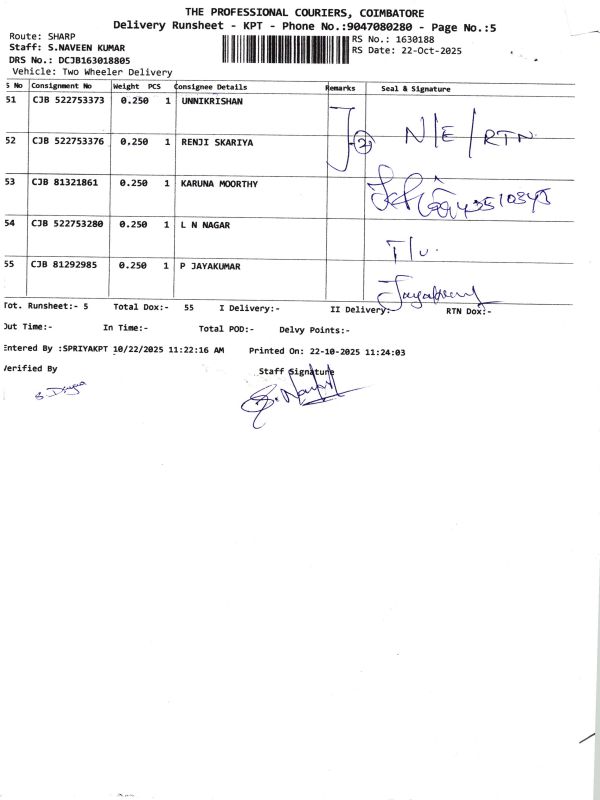 THE PROFESSIONAL COURIERS, COIMBATORE
Delivery Runsheet - KPT - Phone No.:9047080280 - Page No.:5
Route: SHARP
RS No.: 1630188
Staff: S.NAVEEN KUMAR
RS Date: 22-Oct-2025
DRS No.: DCJB163018805
Vehicle: Two Wheeler Delivery
S No Consignment No Weight PCS Consignee Details Remarks Seal & Signature
51 CJB 522753373 0.250 1 UNNIKRISHAN
52 CJB 522753376 0.250 1 RENJI SKARIYA (2) N/E/RTN
53 CJB 81321861 0.250 1 KARUNA MOORTHY
54 CJB 522753280 0.250 1 L N NAGAR T/U.
55 CJB 81292985 0.250 1 P JAYAKUMAR
Tot. Runsheet:- 5 Total Dox:- 55 I Delivery:- II Delivery:- RTN Dox:-
Out Time:- In Time:- Total POD:- Delvy Points:-
Entered By :SPRIYAKPT 10/22/2025 11:22:16 AM Printed On: 22-10-2025 11:24:03
Verified By Staff Signature